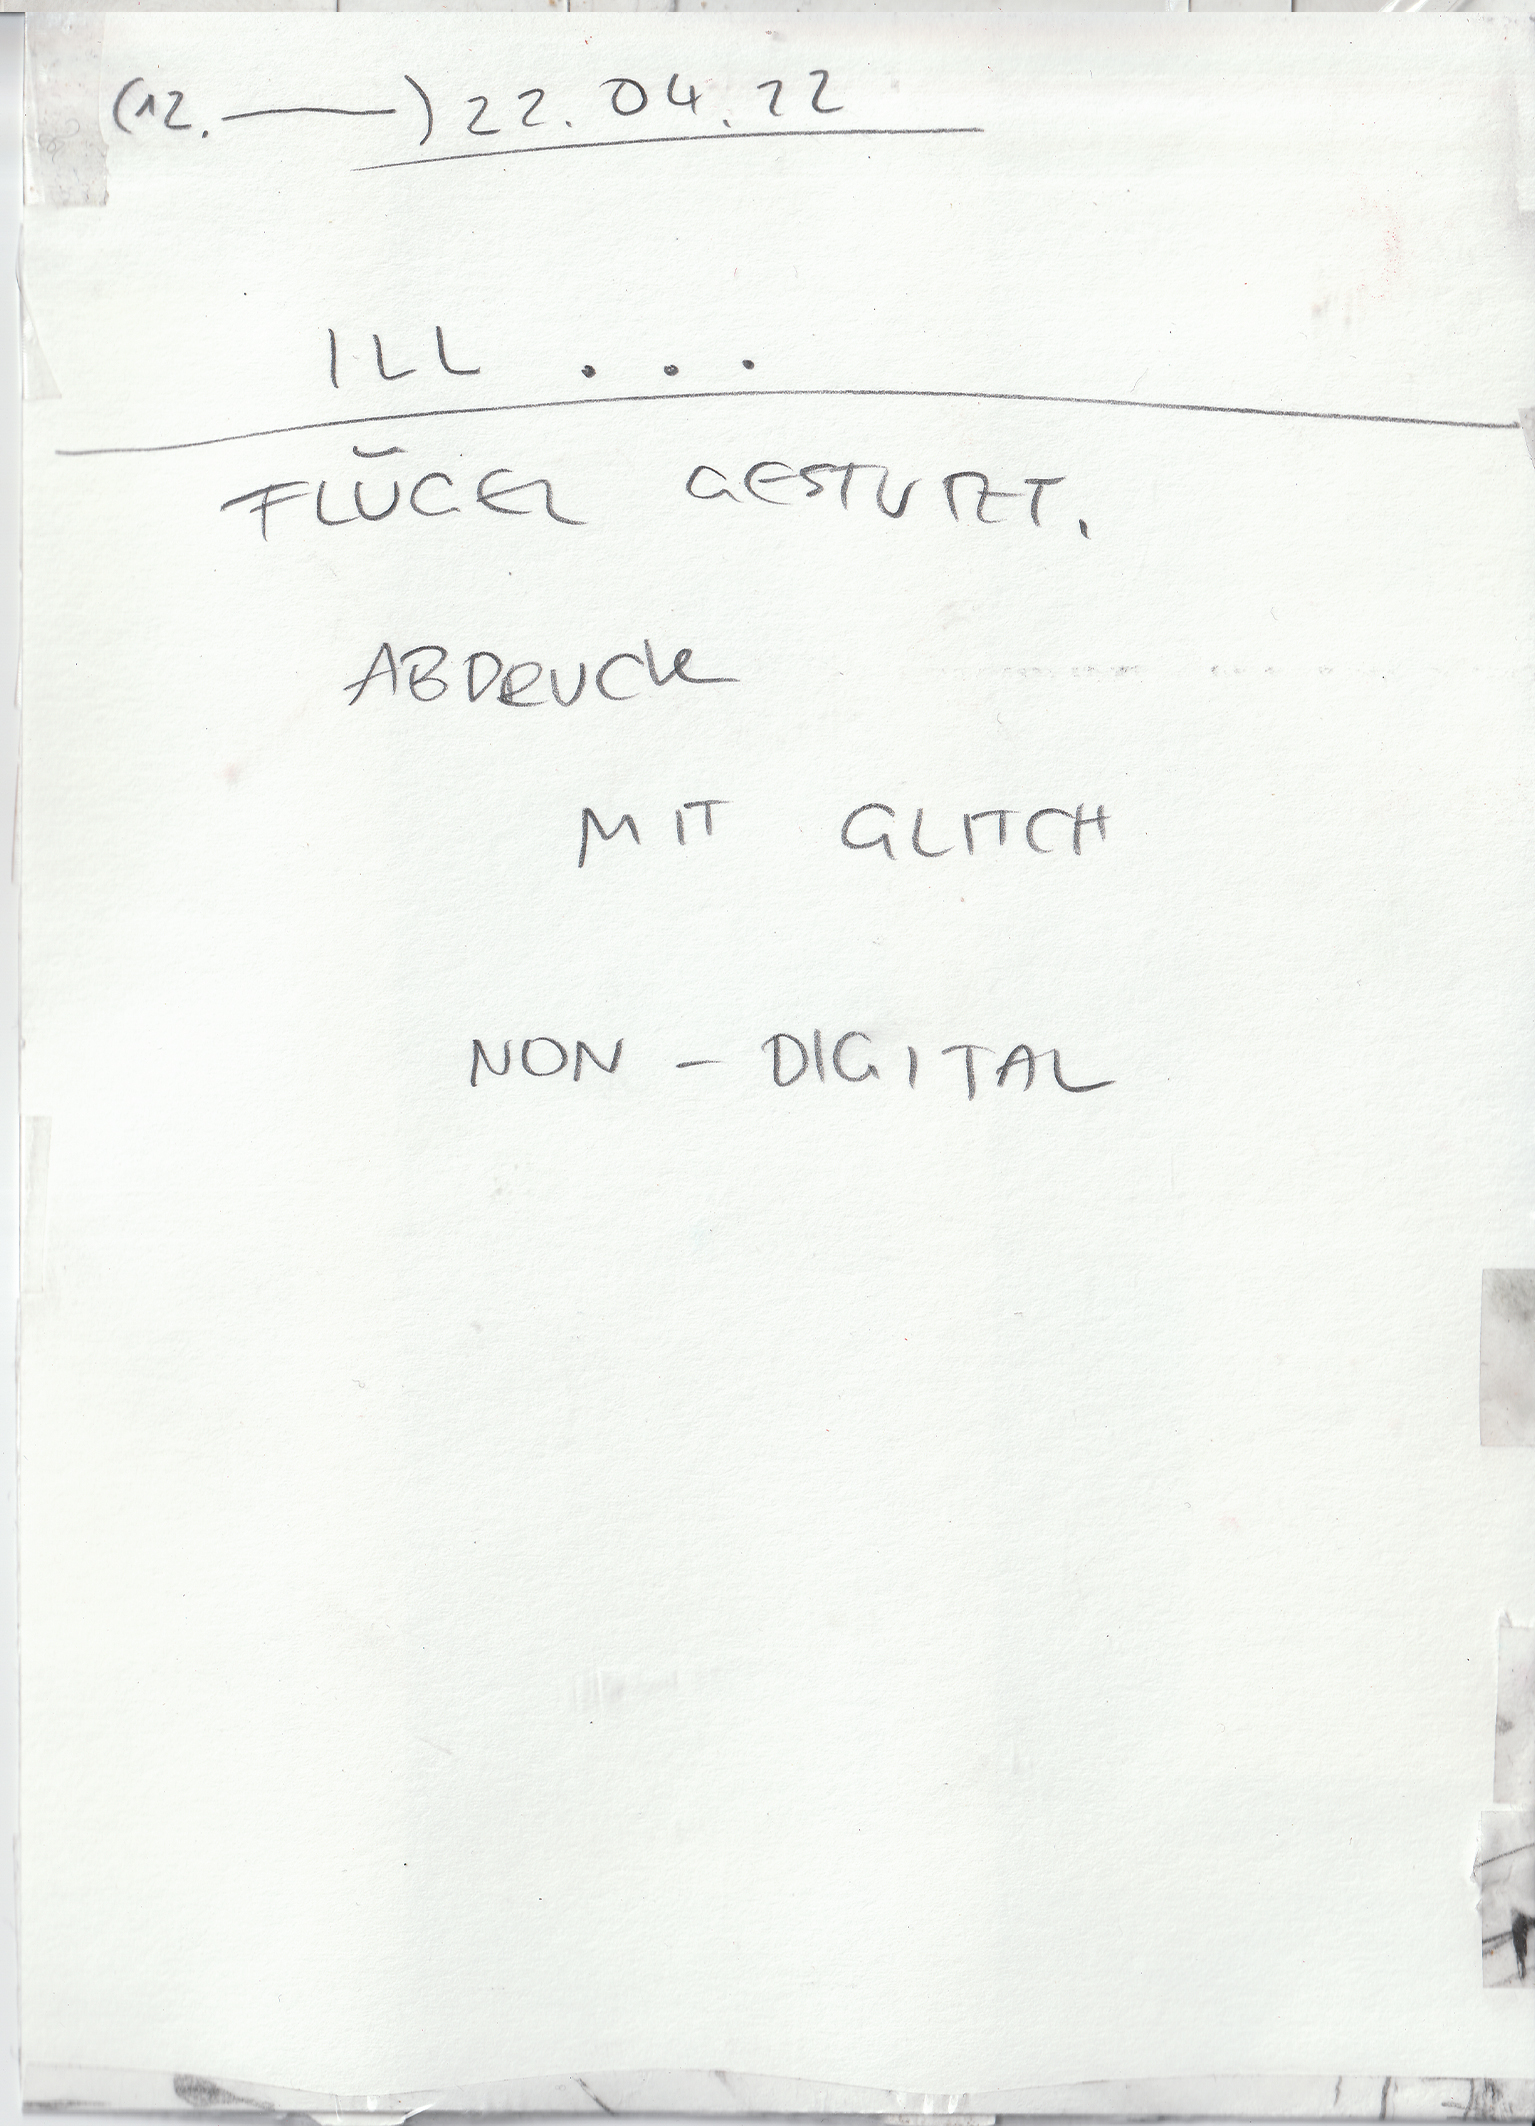 (12. ——) 22.04.22
ILL ...
FLÜGEL GESTUTZT.
ABDRUCK
MIT GLITCH
NON - DIGITAL